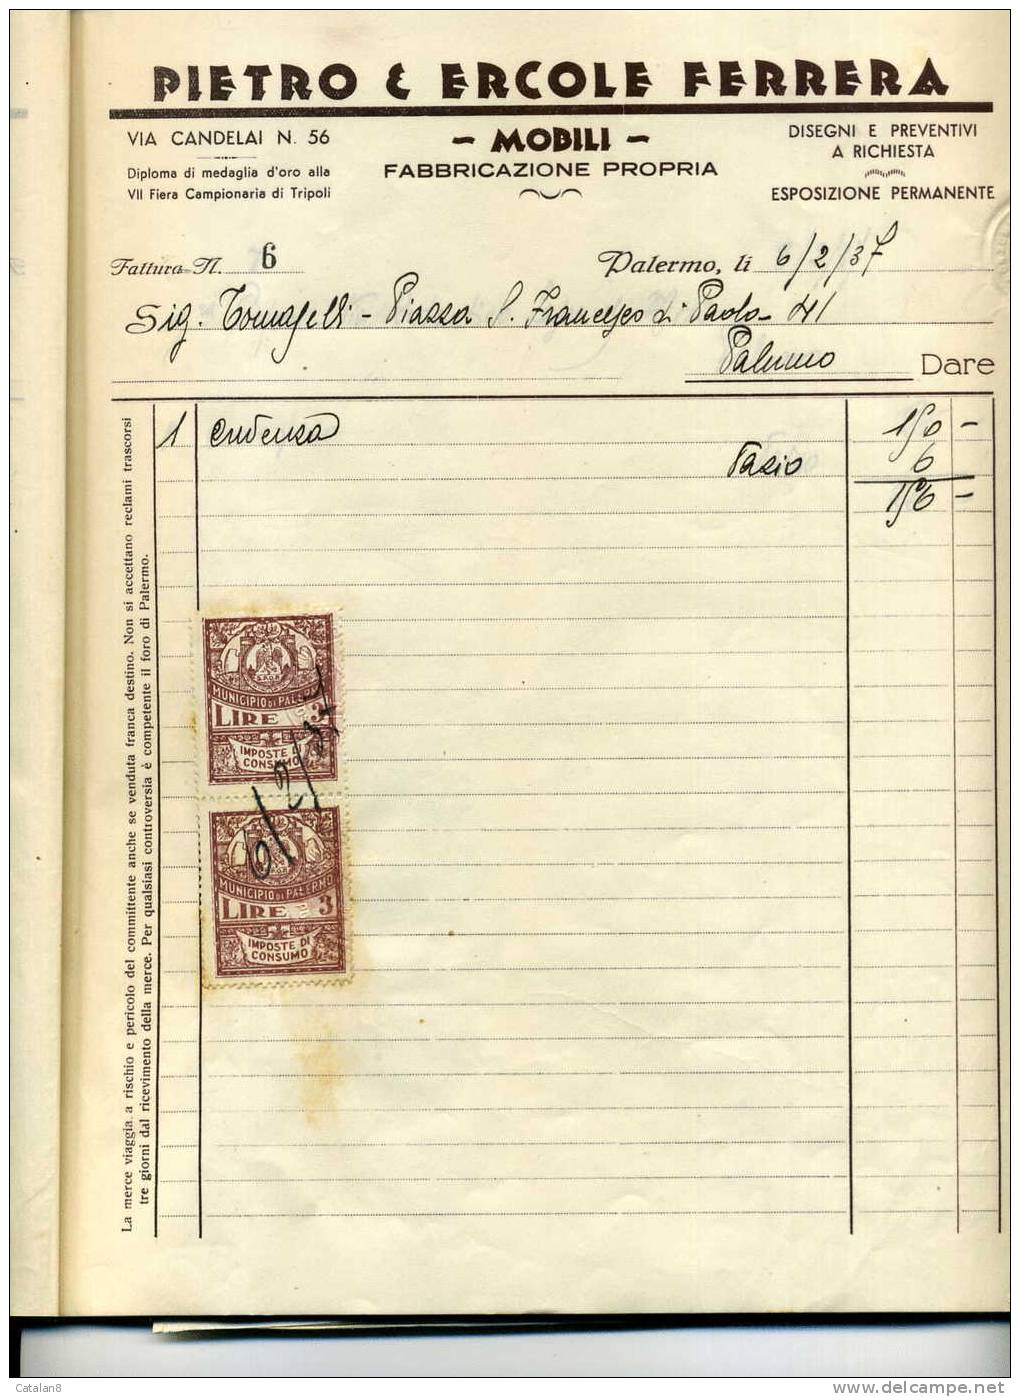 PIETRO & ERCOLE FERRERA
VIA CANDELAI N. 56
Diploma di medaglia d'oro alla
VII Fiera Campionaria di Tripoli
- MOBILI -
FABBRICAZIONE PROPRIA
DISEGNI E PREVENTIVI
A RICHIESTA
ESPOSIZIONE PERMANENTE
Fattura N. 6
Palermo, li 6/2/37
Sig. Tomaselli - Piazza S. Francesco di Paola - 41
Palermo Dare
1 credenza 150 -
Dazio 6
156 -
La merce viaggia a rischio e pericolo del committente anche se venduta franca destino. Non si accettano reclami trascorsi
tre giorni dal ricevimento della merce. Per qualsiasi controversia è competente il foro di Palermo.
MUNICIPIO DI PALERMO
LIRE 3
IMPOSTE DI
CONSUMO
6/2/37
MUNICIPIO DI PALERMO
LIRE 3
IMPOSTE DI
CONSUMO
Catalan8
delcampe.net